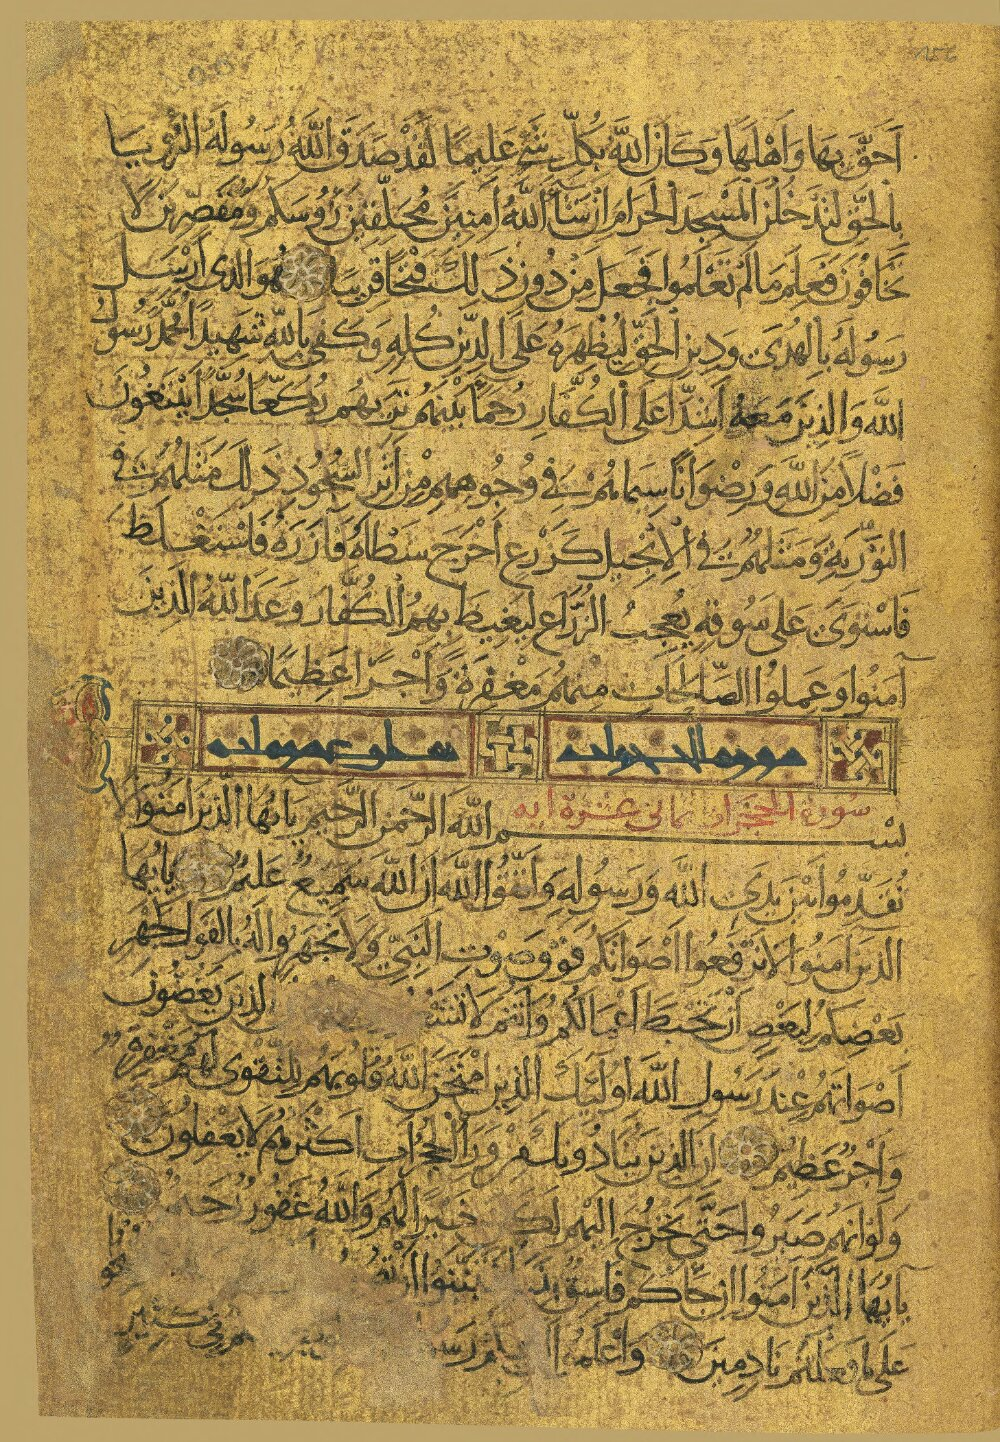 احق بها واهلها وكان الله بكل شي عليما لقد صدق الله رسوله الرؤيا
بالحق لتدخلن المسجد الحرام ان شا الله امنين محلقين رؤسكم ومقصرين لا
تخافون فعلم ما لم تعلموا فجعل من دون ذلك فتحا قريبا هو الذي ارسل
رسوله بالهدى ودين الحق ليظهره على الدين كله وكفى بالله شهيدا محمد رسول
الله والذين معه اشدا على الكفار رحما بينهم تريهم ركعا سجدا يبتغون
فضلا من الله ورضوانا سيماهم في وجوههم من اثر السجود ذلك مثلهم في
التورية ومثلهم في الانجيل كزرع اخرج شطاه فازره فاستغلظ
فاستوى على سوقه يعجب الزراع ليغيظ بهم الكفار وعد الله الذين
آمنوا وعملوا الصالحات منهم مغفرة واجرا عظيما
سورة الحجرات
سورة الحجرات ثماني عشرة اية
بسم الله الرحمن الرحيم يايها الذين امنوا لا
تقدموا بين يدي الله ورسوله واتقوا الله ان الله سميع عليم يايها
الذين امنوا لا ترفعوا اصواتكم فوق صوت النبي ولا تجهروا له بالقول كجهر
بعضكم لبعض ان تحبط اعمالكم وانتم لا الذين يغضون
اصواتهم عند رسول الله اوليك الذين امتحن الله قلوبهم للتقوى لهم مغفرة
واجر عظيم ان الذين ينادونك من ورا الحجرات اكثرهم لا يعقلون
ولو انهم صبروا حتى تخرج اليهم لكان خيرا لهم والله غفور رحيم
يايها الذين امنوا ان جاكم فاسق
على ما فعلتم نادمين واعلموا ان في كثير